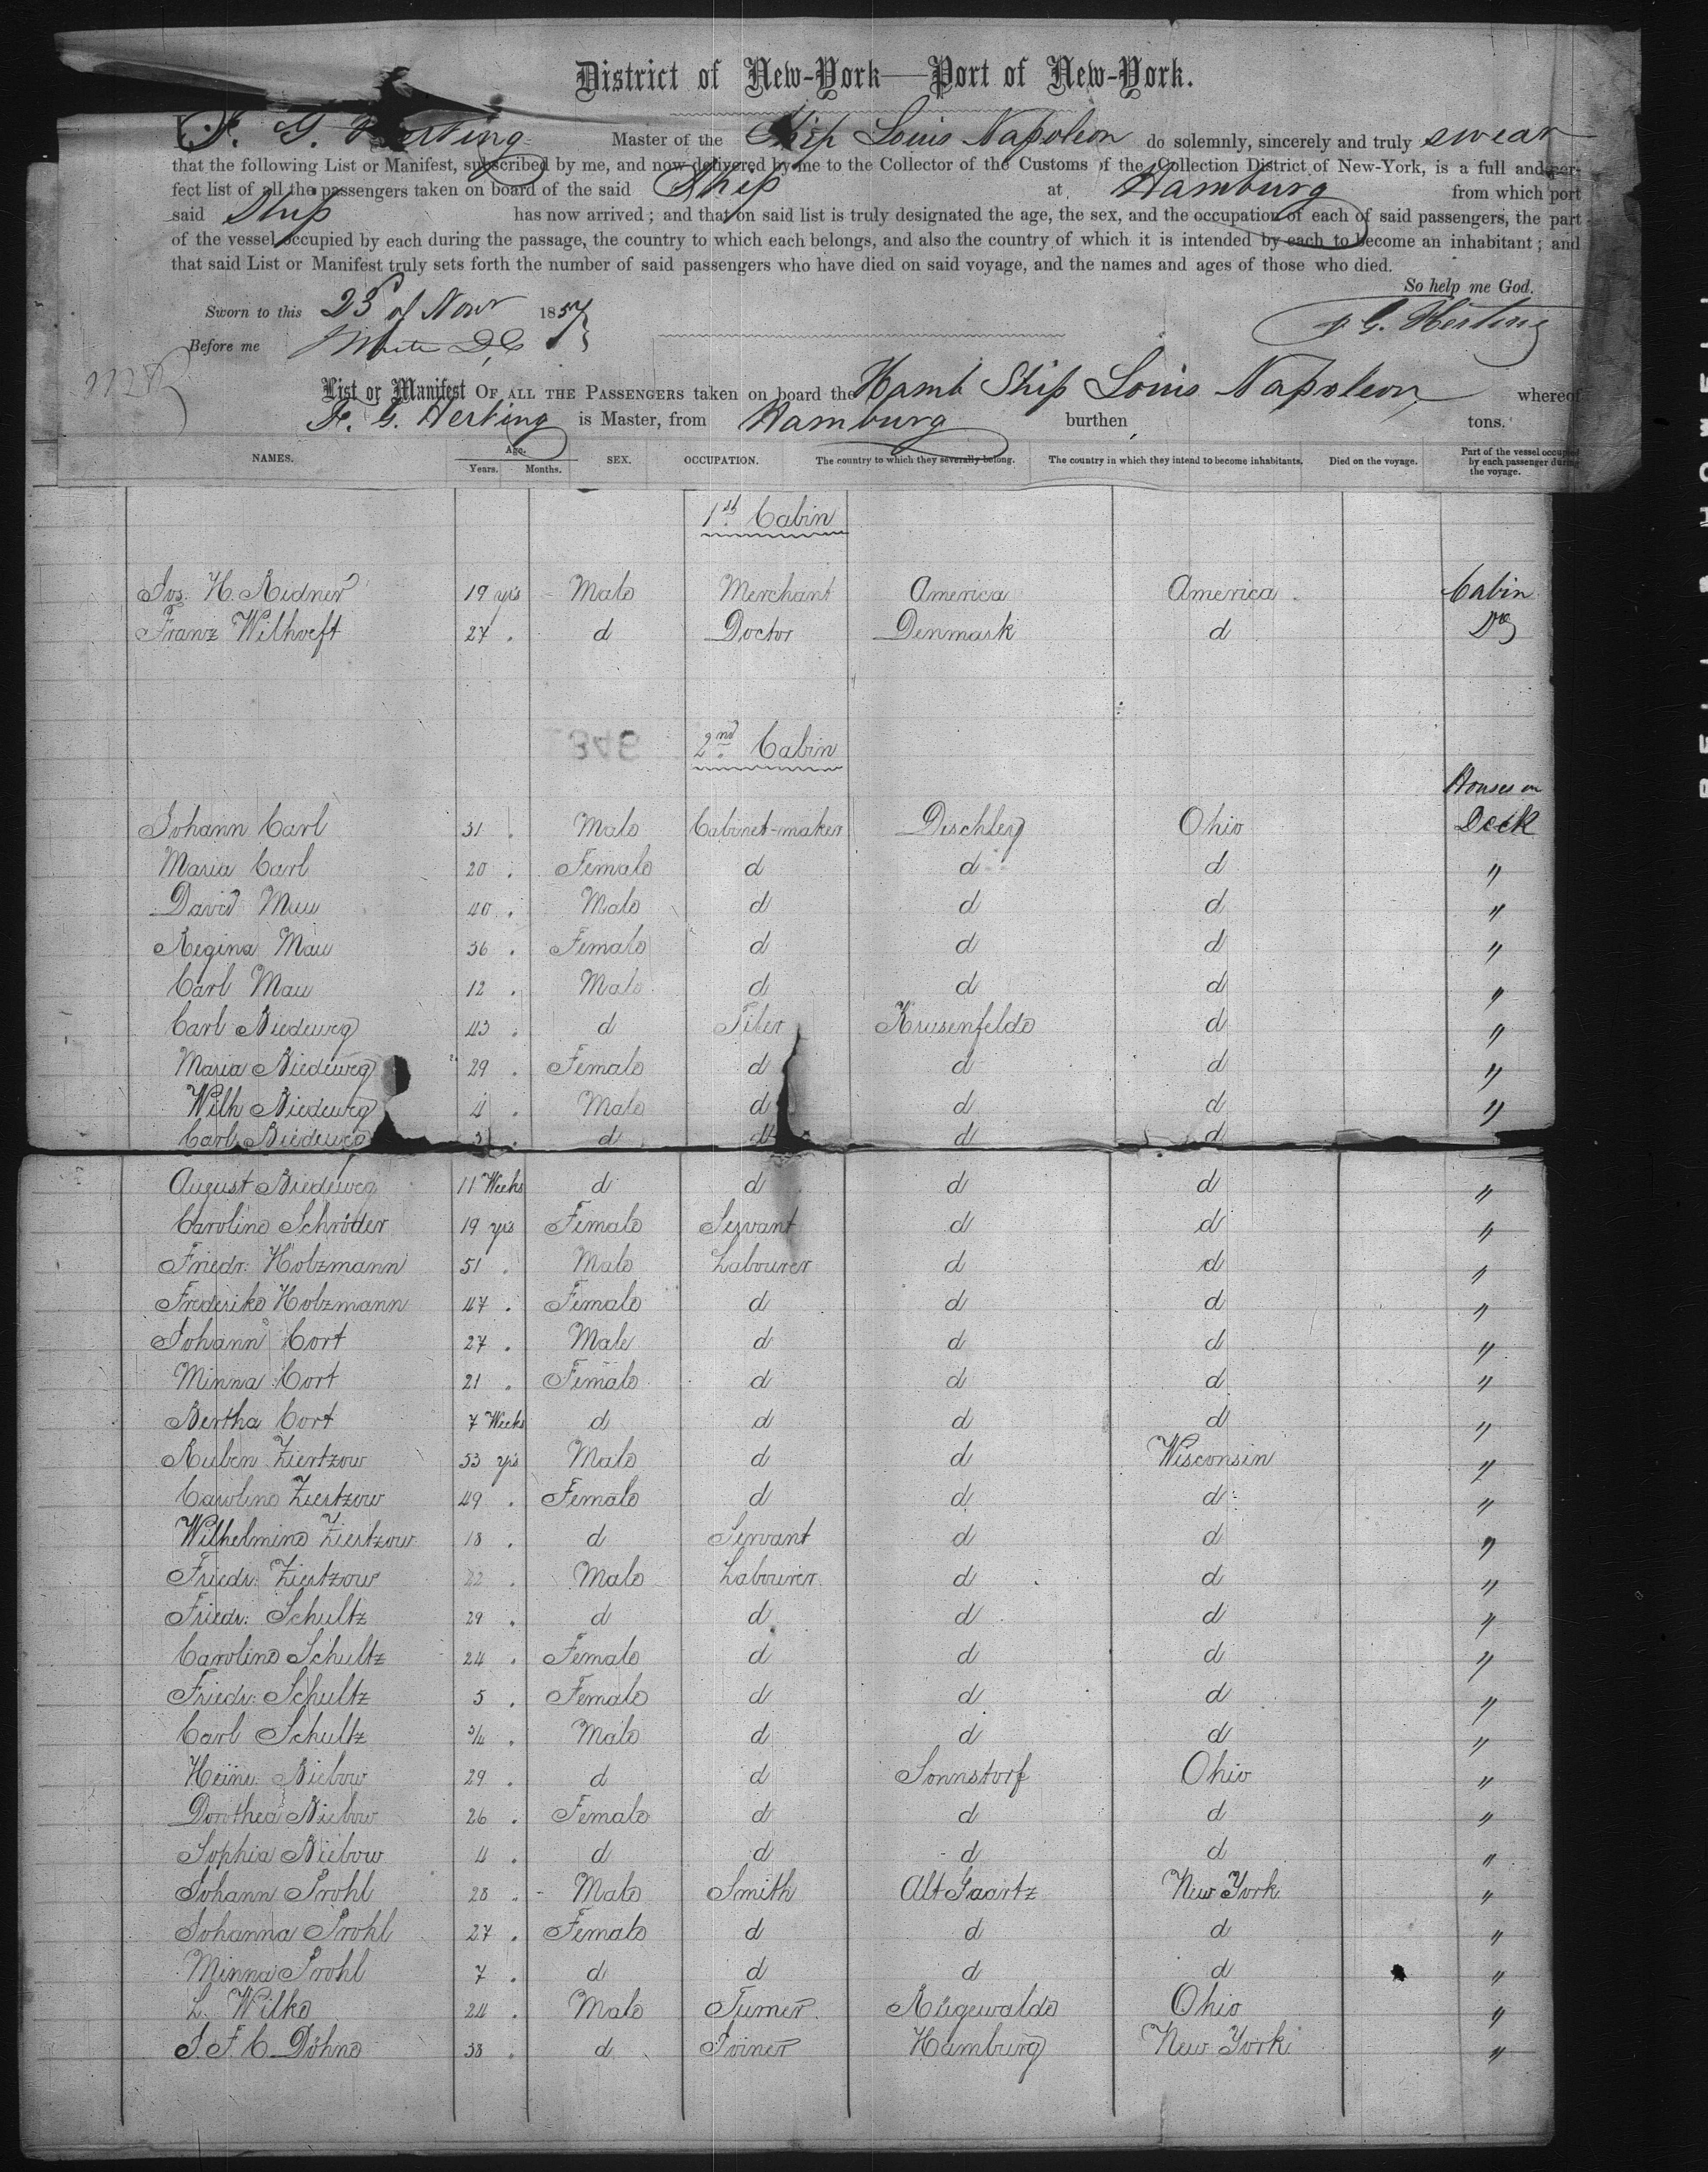 District of New-York—Port of New-York.
G. Herting Master of the Ship Louis Napoleon do solemnly, sincerely and truly swear
that the following List or Manifest, subscribed by me, and now delivered by me to the Collector of the Customs of the Collection District of New-York, is a full and per-
fect list of all the passengers taken on board of the said Ship at Hamburg from which port
said Ship has now arrived; and that on said list is truly designated the age, the sex, and the occupation of each of said passengers, the part
of the vessel occupied by each during the passage, the country to which each belongs, and also the country of which it is intended by each to become an inhabitant; and
that said List or Manifest truly sets forth the number of said passengers who have died on said voyage, and the names and ages of those who died.
So help me God.
Sworn to this 23 of Novr 1857
G. Herting
Before me White
List or Manifest OF ALL THE PASSENGERS taken on board the Hamb Ship Louis Napoleon whereof
G. Herting is Master, from Hamburg burthen tons.
NAMES. Age. Years. Months. SEX. OCCUPATION. The country to which they severally belong. The country in which they intend to become inhabitants. Died on the voyage. Part of the vessel occupied by each passenger during the voyage.
1st Cabin
Jos. H. Ridner 19 yrs Male Merchant America America Cabin
Franz Wilhoeft 27 d Doctor Denmark d Do
2nd Cabin
Houses on
Johann Carl 31 Male Cabinet-maker Dischley Ohio Deck
Maria Carl 20 Female d d d "
David Mau 40 Male d d d "
Regina Mau 36 Female d d d "
Carl Mau 12 Male d d d "
Carl Biedeweg 43 d Tiler Krusenfelde d "
Maria Biedeweg 29 Female d d d "
Wilh Biedeweg 4 Male d d d "
Carl Biedeweg 3 d d d d
August Biedeweg 11 Weeks d d d d "
Caroline Schröder 19 yrs Female Servant d d "
Friedr: Holzmann 51 Male Labourer d d "
Frederike Holzmann 47 Female d d d "
Johann Cort 27 Male d d d "
Minna Cort 21 Female d d d "
Bertha Cort 7 Weeks d d d d "
Ruben Ziertzow 53 yrs Male d d Wisconsin "
Caroline Ziertzow 49 Female d d d "
Wilhelmine Ziertzow 18 d Servant d d "
Friedr: Ziertzow 22 Male Labourer d d "
Friedr: Schultz 29 d d d d "
Caroline Schultz 24 Female d d d "
Friedr: Schultz 5 Female d d d "
Carl Schultz 3/4 Male d d d "
Heinr. Niebow 29 d d Sonnstorf Ohio "
Dorothea Niebow 26 Female d d d "
Sophia Niebow 4 d d d d "
Johann Prohl 28 Male Smith Alt Gaartz New York "
Johanna Prohl 27 Female d d d "
Minna Prohl 7 d d d d "
L. Wilke 24 Male Turner Rügewalde Ohio "
J. F. C. Döhne 38 d Joiner Hamburg New York "